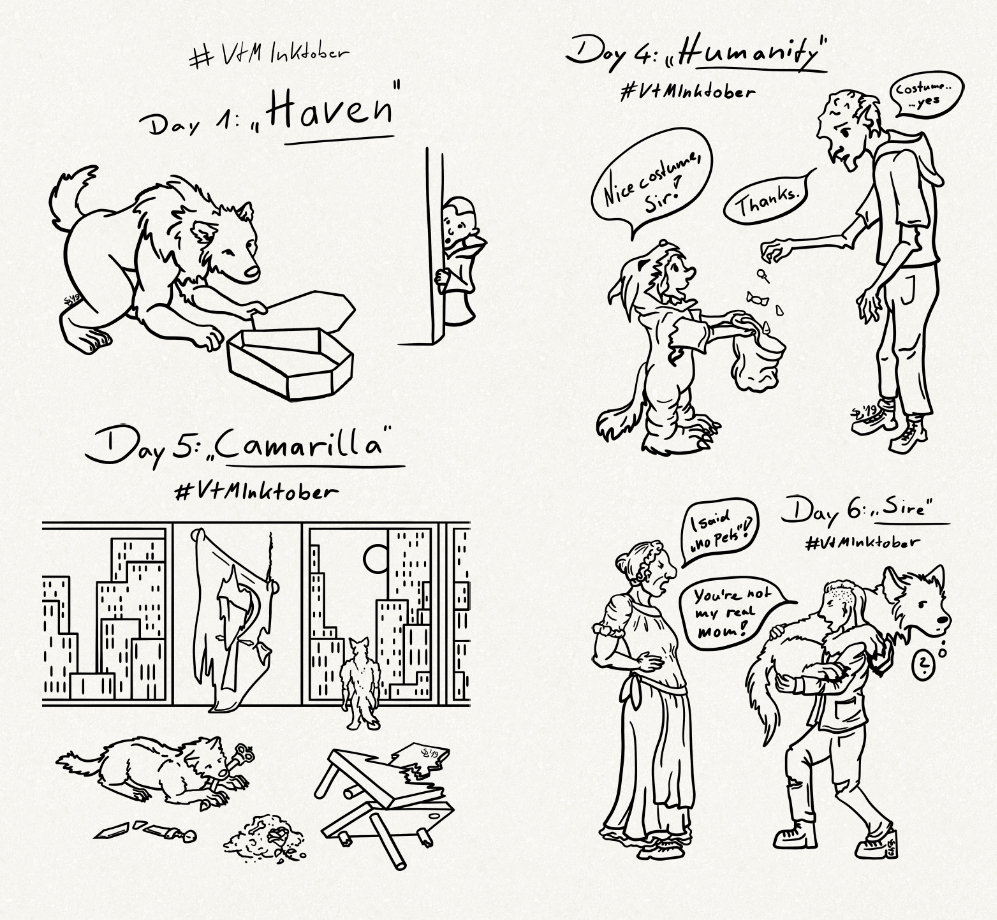 #VtMInktober
Day 1: „Haven"
Day 4: „Humanity"
#VtMInktober
Costume..
...yes
Nice costume,
Sir!
Thanks.
Day 5: „Camarilla"
#VtMInktober
Day 6: „Sire"
#VtMInktober
I said
„no pets"!
You're not
my real
mom!
?